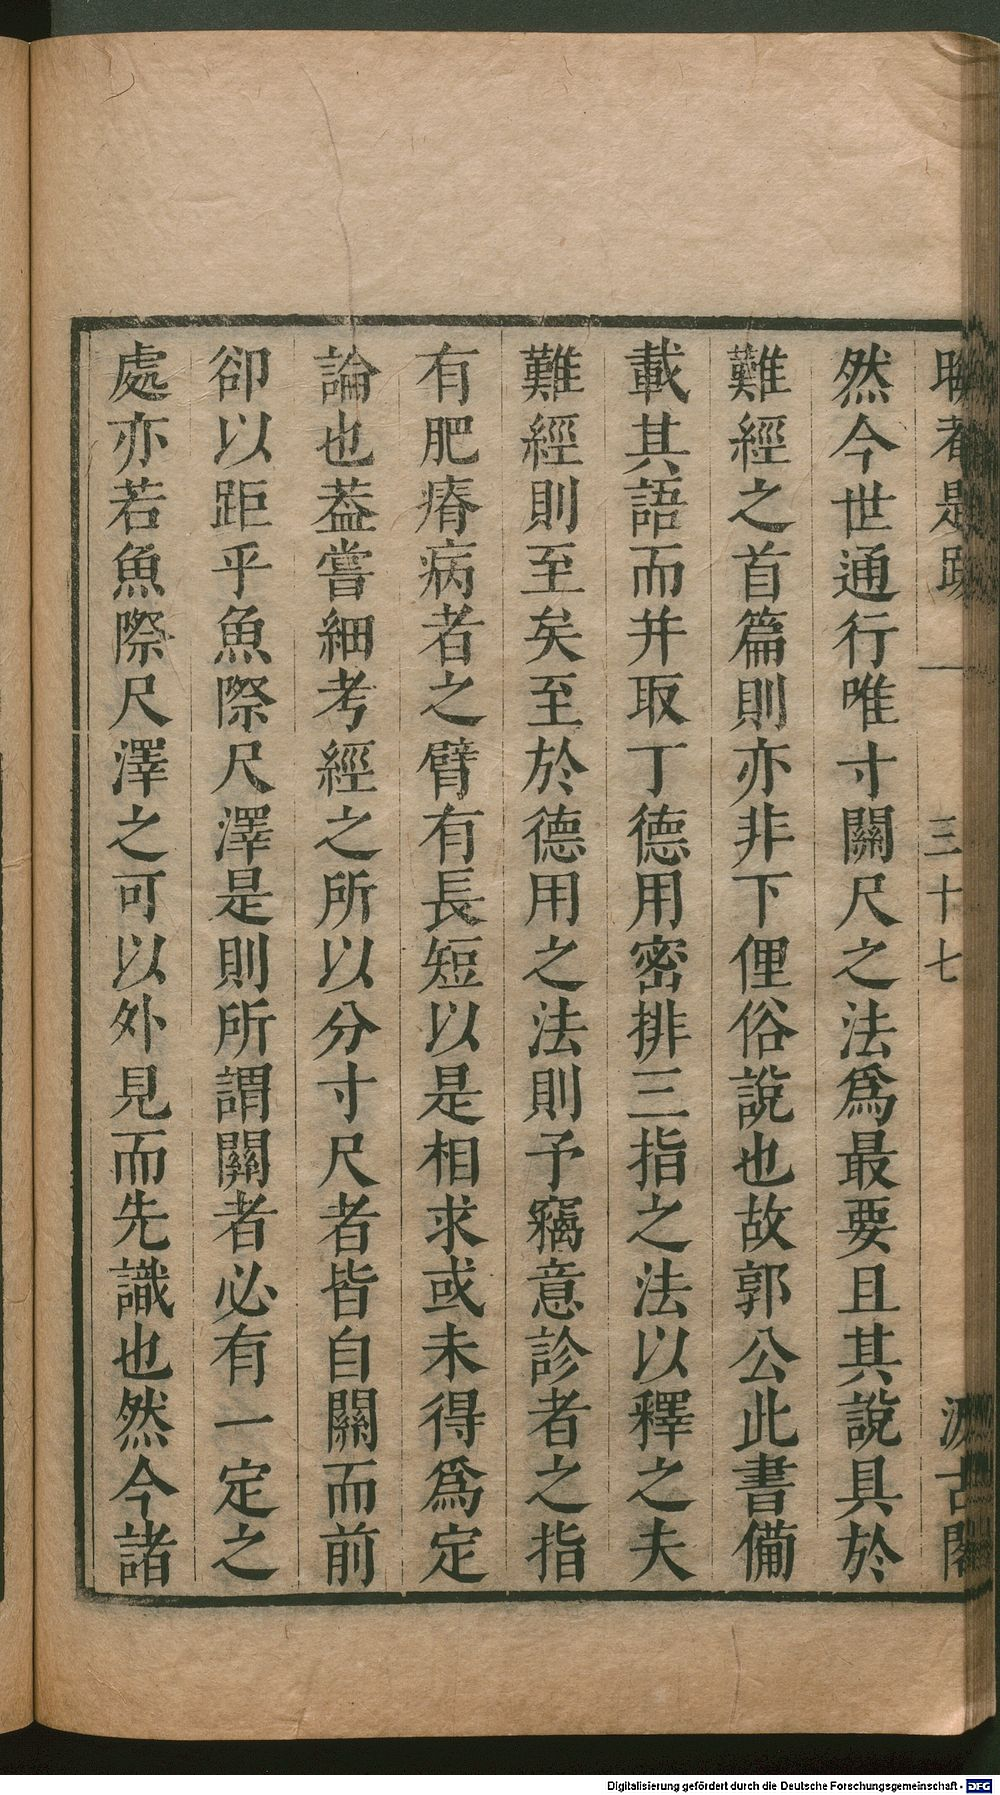 晦菴題跋 一 三十七 汲古閣
然今世通行唯寸關尺之法爲最要且其說具於
難經之首篇則亦非下俚俗說也故郭公此書備
載其語而并取丁德用密排三指之法以釋之夫
難經則至矣至於德用之法則予竊意診者之指
有肥瘠病者之臂有長短以是相求或未得爲定
論也葢嘗細考經之所以分寸尺者皆自關而前
卻以距乎魚際尺澤是則所謂關者必有一定之
處亦若魚際尺澤之可以外見而先識也然今諸
Digitalisierung gefördert durch die Deutsche Forschungsgemeinschaft - DFG